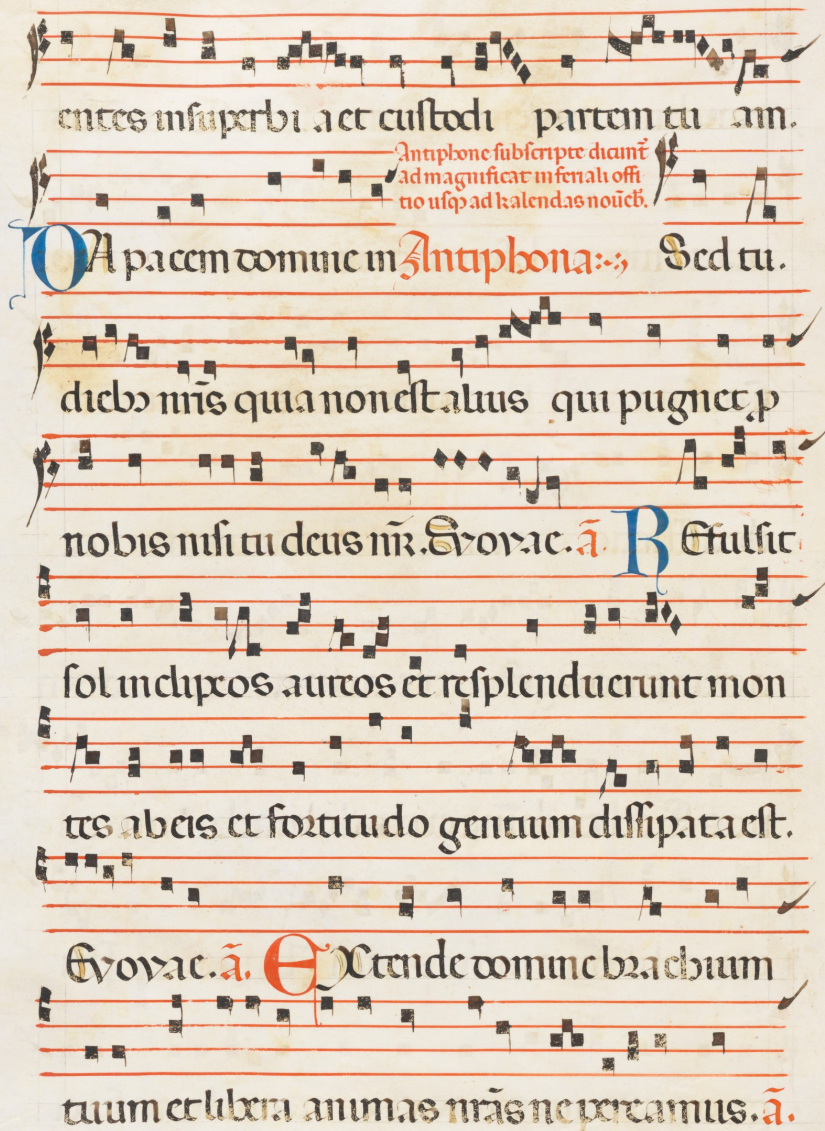 entes insuperbi a et custodi partem tu am.
Antiphone subscripte dicunt̃
ad magnificat in feriali offi
tio usqꝫ ad kalendas noũeb̃.
DA pacem domine in Antiphona: Sed tu.
diebꝫ nr̃is quia non est alius qui pugnet ꝓ
nobis nisi tu deus nr̃. Evovae. ã REfulsit
sol in clipeos aureos et resplenduerunt mon
tes ab eis et fortitudo gentium dissipata est.
Evovae. ã. EXtende domine brachium
tuum et libera animas nr̃as ne pereamus. ã.